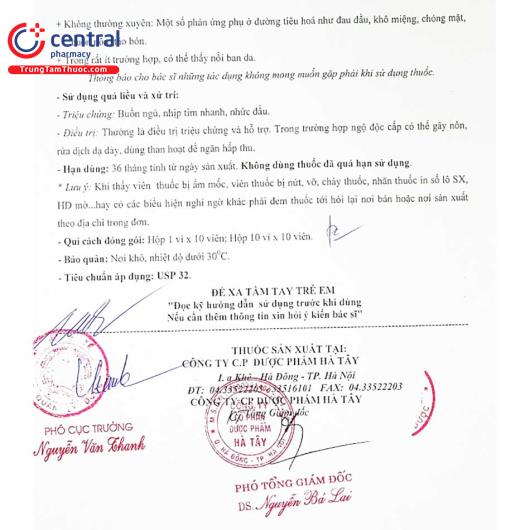 + Không thường xuyên: Một số phản ứng phụ ở đường tiêu hoá như đau đầu, khô miệng, chóng mặt,
central
pharmacy
TrungTamThuoc.com
táo bón.
+ Trong rất ít trường hợp, có thể thấy nổi ban da.
Thông báo cho bác sĩ những tác dụng không mong muốn gặp phải khi sử dụng thuốc.
- Sử dụng quá liều và xử trí:
- Triệu chứng: Buồn ngủ, nhịp tim nhanh, nhức đầu.
- Điều trị: Thường là điều trị triệu chứng và hỗ trợ. Trong trường hợp ngộ độc cấp có thể gây nôn,
rửa dịch dạ dày, dùng than hoạt để ngăn hấp thu.
- Hạn dùng: 36 tháng tính từ ngày sản xuất. Không dùng thuốc đã quá hạn sử dụng.
* Lưu ý: Khi thấy viên thuốc bị ẩm mốc, viên thuốc bị nứt, vỡ, chảy thuốc, nhãn thuốc in số lô SX,
HD mờ...hay có các biểu hiện nghi ngờ khác phải đem thuốc tới hỏi lại nơi bán hoặc nơi sản xuất
theo địa chỉ trong đơn.
- Qui cách đóng gói: Hộp 1 vỉ x 10 viên; Hộp 10 vỉ x 10 viên.
- Bảo quản: Nơi khô, nhiệt độ dưới 30°C.
- Tiêu chuẩn áp dụng: USP 32.
ĐỂ XA TẦM TAY TRẺ EM
"Đọc kỹ hướng dẫn sử dụng trước khi dùng
Nếu cần thêm thông tin xin hỏi ý kiến bác sĩ"
THUỐC SẢN XUẤT TẠI:
CÔNG TY C.P DƯỢC PHẨM HÀ TÂY
La Khê - Hà Đông - TP. Hà Nội
ĐT: 04.33522203 FAX: 04.33522203
CÔNG TY CP DƯỢC PHẨM HÀ TÂY
CÔNG TY
CỔ PHẦN
DƯỢC PHẨM
HÀ TÂY
Q. HÀ ĐÔNG - TP. HÀ NỘI
PHÓ CỤC TRƯỞNG
Nguyễn Văn Thanh
PHÓ TỔNG GIÁM ĐỐC
DS. Nguyễn Bá Lai